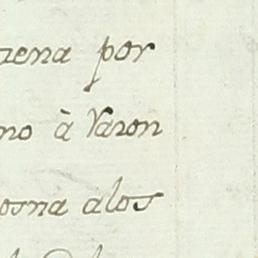 rena por
no à Varon
osna alos